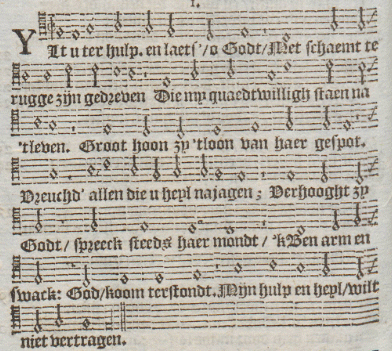 1.
YLt u ter hulp. en laets'/o Godt/Met schaemt te
rugge zijn gedreven Die my quaedtwilligh staen na
'tleven. Groot hoon zy 'tloon van haer gespot.
Vreuchd' allen die u heyl najagen; Verhooght zy
Godt/ spreeck steeds haer mondt/ 'kBen arm en
swack: God/koom terstondt. Mijn hulp en heyl/wilt
niet vertragen.